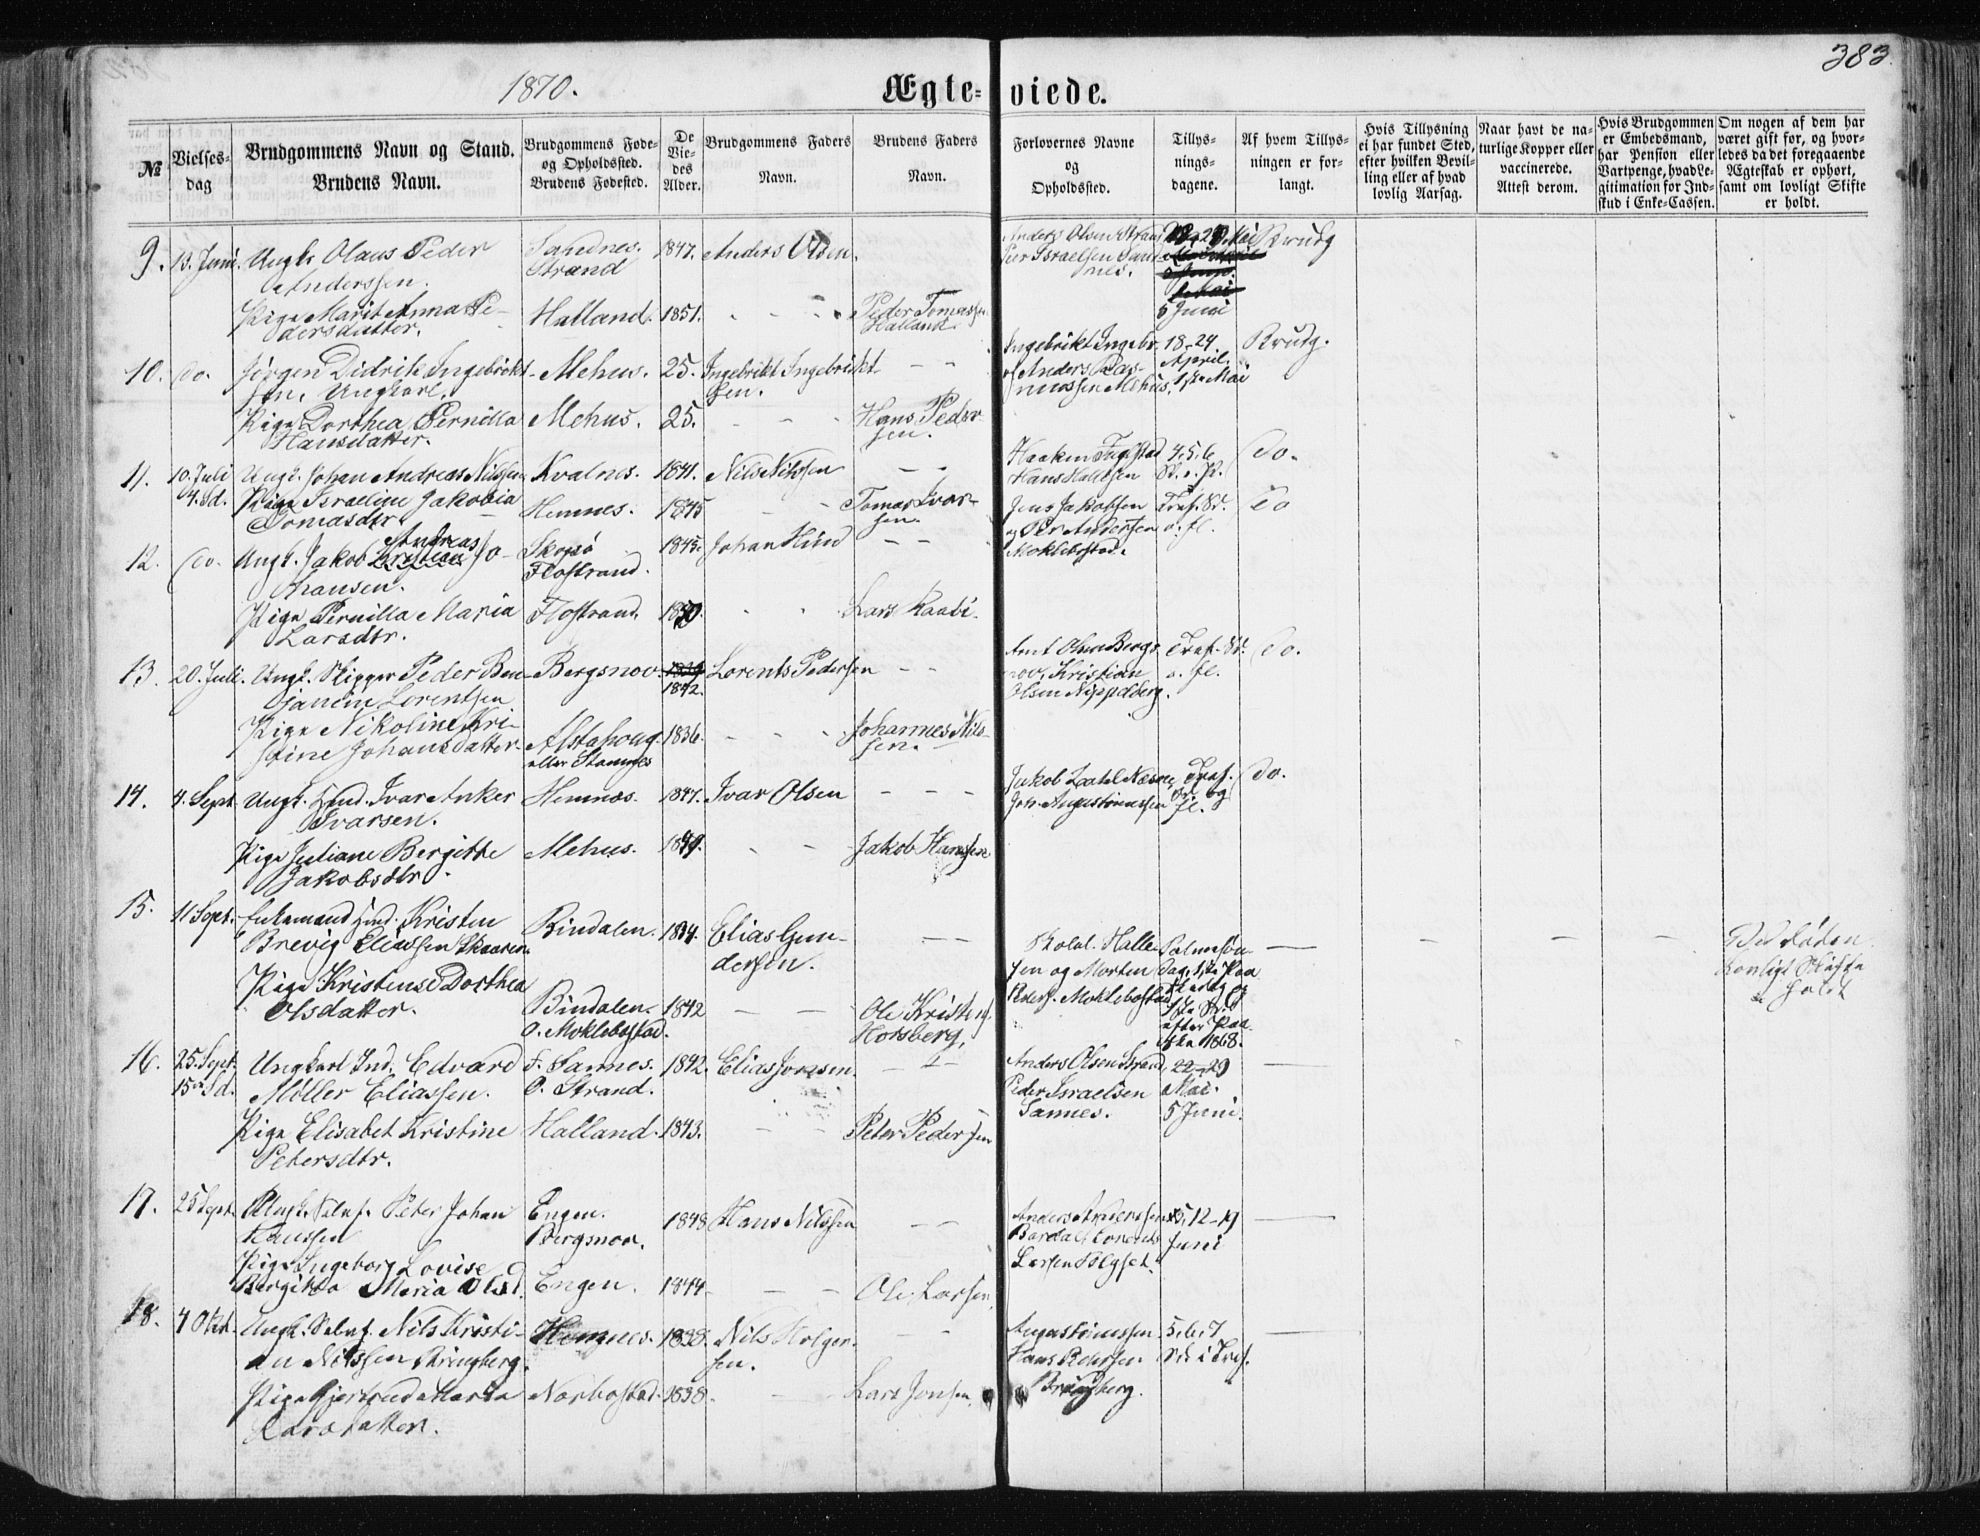 383.
1870.
Ægteviede.
№
Vielses-
dag
Brudgommens Navn og Stand.
Brudens Navn.
Brudgommens Føde-
og Opholdssted.
Brudens Fødested.
De
Vie-
des
Alder.
Brudgommens Faders
Navn.
Brudens Faders
Navn.
Forlovernes Navne
og
Opholdssted.
Tillys-
nings-
dagene.
Af hvem Tillys-
ningen er for-
langt.
Hvis Tillysning
ei har fundet Sted,
efter hvilken Bevil-
ling eller af hvad
lovlig Aarsag.
Naar havt de na-
turlige Kopper eller
vaccinerede.
Attest derom.
Hvis Brudgommen
er Embedsmand,
har Pension eller
Vartpenge, hvad Le-
gitimation for Ind-
skud i Enke-Cassen.
Om nogen af dem har
været gift før, og hvor-
ledes da det foregaaende
Ægteskab er ophørt,
samt om lovligt Skifte
er holdt.
9. 13. Juni. Ungk. Olaus Peder
Anderssen.
Sandnes.
Strand
1847. Anders Olsen.
Anders Olsen Strand
Peer Israelsen Sand-
nes.
Mai
5 Juni
Brudg
Pige Marit Anna Pe-
dersdatter.
Halland. 1851. Peder Tomassen
Halland.
10. do. Jørgen Didrik Ingebrikt-
sen, Ungkarl.
Mehus. 25. Ingebrikt Ingebrikt-
sen.
Ingebrikt Ingebr.
og Anders Ras-
mussen Mehus.
18-24
April.
1ste Mai
Brudg.
Pige Dorthea Pernilla
Hansdatter.
Mehus. 25. Hans Peder-
sen.
11. 10. Juli
4. Sd.
Ungk. Johan Andreas Nilssen Kvalnes. 1841. Nils Nilssen
Haaken
Hans
4. 5. 6
do.
Pige Israeline Jakobia
Tomasdtr.
Hemnes. 1845 Tomas Ivar-
sen.
12. do. Ungk. Jakob Andreas Jo-
hansen.
Flostrand.
1845. Johan Hind
Jens Jakobsen
og Per Anderssen
Moklebostad.
Tref. Sd.
o. fl.
do
Pige Pernilla Maria
Larsdtr.
Flostrand. Lars Raabi.
13. 20. Juli. Ungk. Skipper Peder Ben-
janim Lorentsen
Bergsnov. 1842. Lorents Pedersen
Olsen Bergs-
nov, Kristian
Olsen
Tref. Sd.
o. fl.
do.
Pige Nikoline Kri-
stine Johansdatter
Alstahoug
eller Stamnes
1836. Johannes Nils-
sen.
14. 4. Sept. Ungk. Ind. Ivar Anker
Ivarsen.
Hemnæs. 1847. Ivar Olsen
Jakob
Tref.
Sd. og
fl.
do.
Pige Juliane Bergitte
Jakobsdtr.
Mehus. 1849. Jakob Hanssen
15. 11 Sept. Enkemand Ind. Kristen
Brevig Eliassen Skaaren
Bindalen. 1834. Elias Gun-
dersen.
Halle-
sen og Morten
Peders. Moklebostad
Palmesøn-
dag, 1ste Paa
skedag og
1ste Sd.
efter Paa-
ske 1868.
Ved Døden
Lovligt Skifte
er holdt
Pige Kristense Dorthea
Olsdatter.
Bindalen.
O. Moklebostad.
1842 Ole Kristens.
Horsberg.
16. 25. Sept.
15de Sd.
Ungkarl Ind. Edvard
Møller Eliassen.
F. Sannes.
O. Strand.
1842. Elias Jonsen.
Anders Olsen Strand
Peder Israelsen
Sannes.
22-29
Mai.
5 Juni.
Pige Elisabet Kristine
Petersdtr.
Halland. 1843. Peter Pedersen
17. 25 Sept. Ungk. Selvf. Peter Johan
Hanssen
Engen.
Bergsnov.
1848 Hans Nilssen
Anders Anderssen
Bardal Lorents
Larsen
5, 12-19
Juni
Pige Ingeborg Lovise
Bergitta Maria Olsd.
Engen. 1844. Ole Larsen.
18. 4 Okt. Ungk. Selvf. Nils Kristi-
an Nilssen Bringberg.
Hemnes. 1838. Nils Holger-
sen.
Hans Pedersen
Bringberg.
5. 6. 7
Sd. i Tref.
Pige Gjertrud Marta
Larsdatter.
Norbostad. 1838. Lars Jonsen.